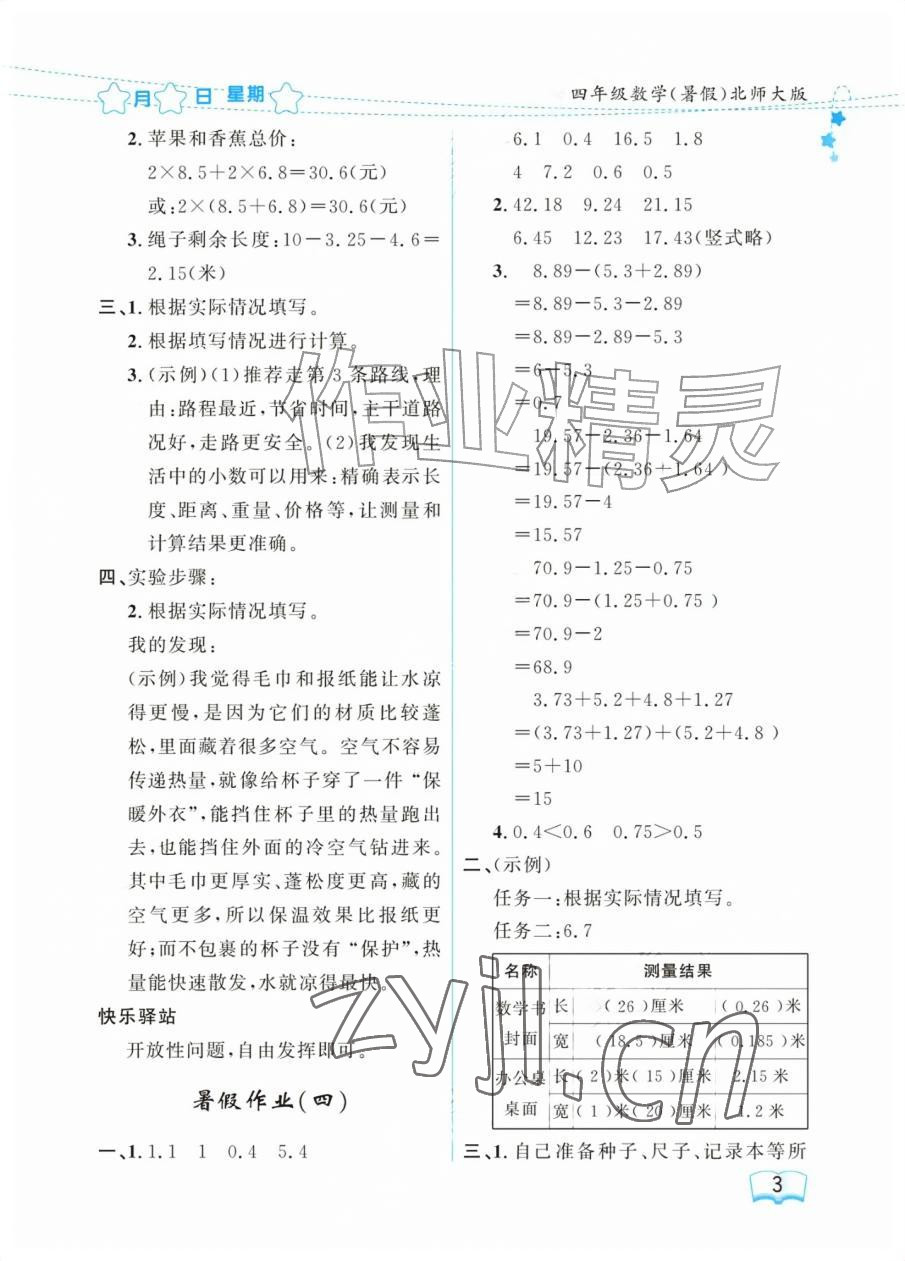 月 日 星期
四年级数学(暑假)北师大版
2. 苹果和香蕉总价:
2×8.5+2×6.8=30.6(元)
或:2×(8.5+6.8)=30.6(元)
3. 绳子剩余长度:10-3.25-4.6=
2.15(米)
三、1. 根据实际情况填写。
2. 根据填写情况进行计算。
3. (示例)(1)推荐走第 3 条路线,理
由:路程最近,节省时间,主干道路
况好,走路更安全。(2)我发现生
活中的小数可以用来:精确表示长
度、距离、重量、价格等,让测量和
计算结果更准确。
四、实验步骤:
2. 根据实际情况填写。
我的发现:
(示例)我觉得毛巾和报纸能让水凉
得更慢,是因为它们的材质比较蓬
松,里面藏着很多空气。空气不容易
传递热量,就像给杯子穿了一件“保
暖外衣”,能挡住杯子里的热量跑出
去,也能挡住外面的冷空气钻进来。
其中毛巾更厚实、蓬松度更高,藏的
空气更多,所以保温效果比报纸更
好;而不包裹的杯子没有“保护”,热
量能快速散发,水就凉得最快。
快乐驿站
开放性问题,自由发挥即可。
暑假作业(四)
一、1. 1.1 1 0.4 5.4
6.1 0.4 16.5 1.8
4 7.2 0.6 0.5
2. 42.18 9.24 21.15
6.45 12.23 17.43(竖式略)
3. 8.89-(5.3+2.89)
=8.89-5.3-2.89
=8.89-2.89-5.3
=6-5.3
=0.7
19.57-2.36-1.64
=19.57-(2.36+1.64)
=19.57-4
=15.57
70.9-1.25-0.75
=70.9-(1.25+0.75)
=70.9-2
=68.9
3.73+5.2+4.8+1.27
=(3.73+1.27)+(5.2+4.8)
=5+10
=15
4. 0.4<0.6 0.75>0.5
二、(示例)
任务一:根据实际情况填写。
任务二:6.7
名称 测量结果
数学书 长 (26)厘米 (0.26)米
封面 宽 (18.5)厘米 (0.185)米
办公桌 长 (2)米(15)厘米 2.15米
桌面 宽 (1)米(20)厘米 1.2米
三、1. 自己准备种子、尺子、记录本等所
3
作业精灵
zyjl.cn